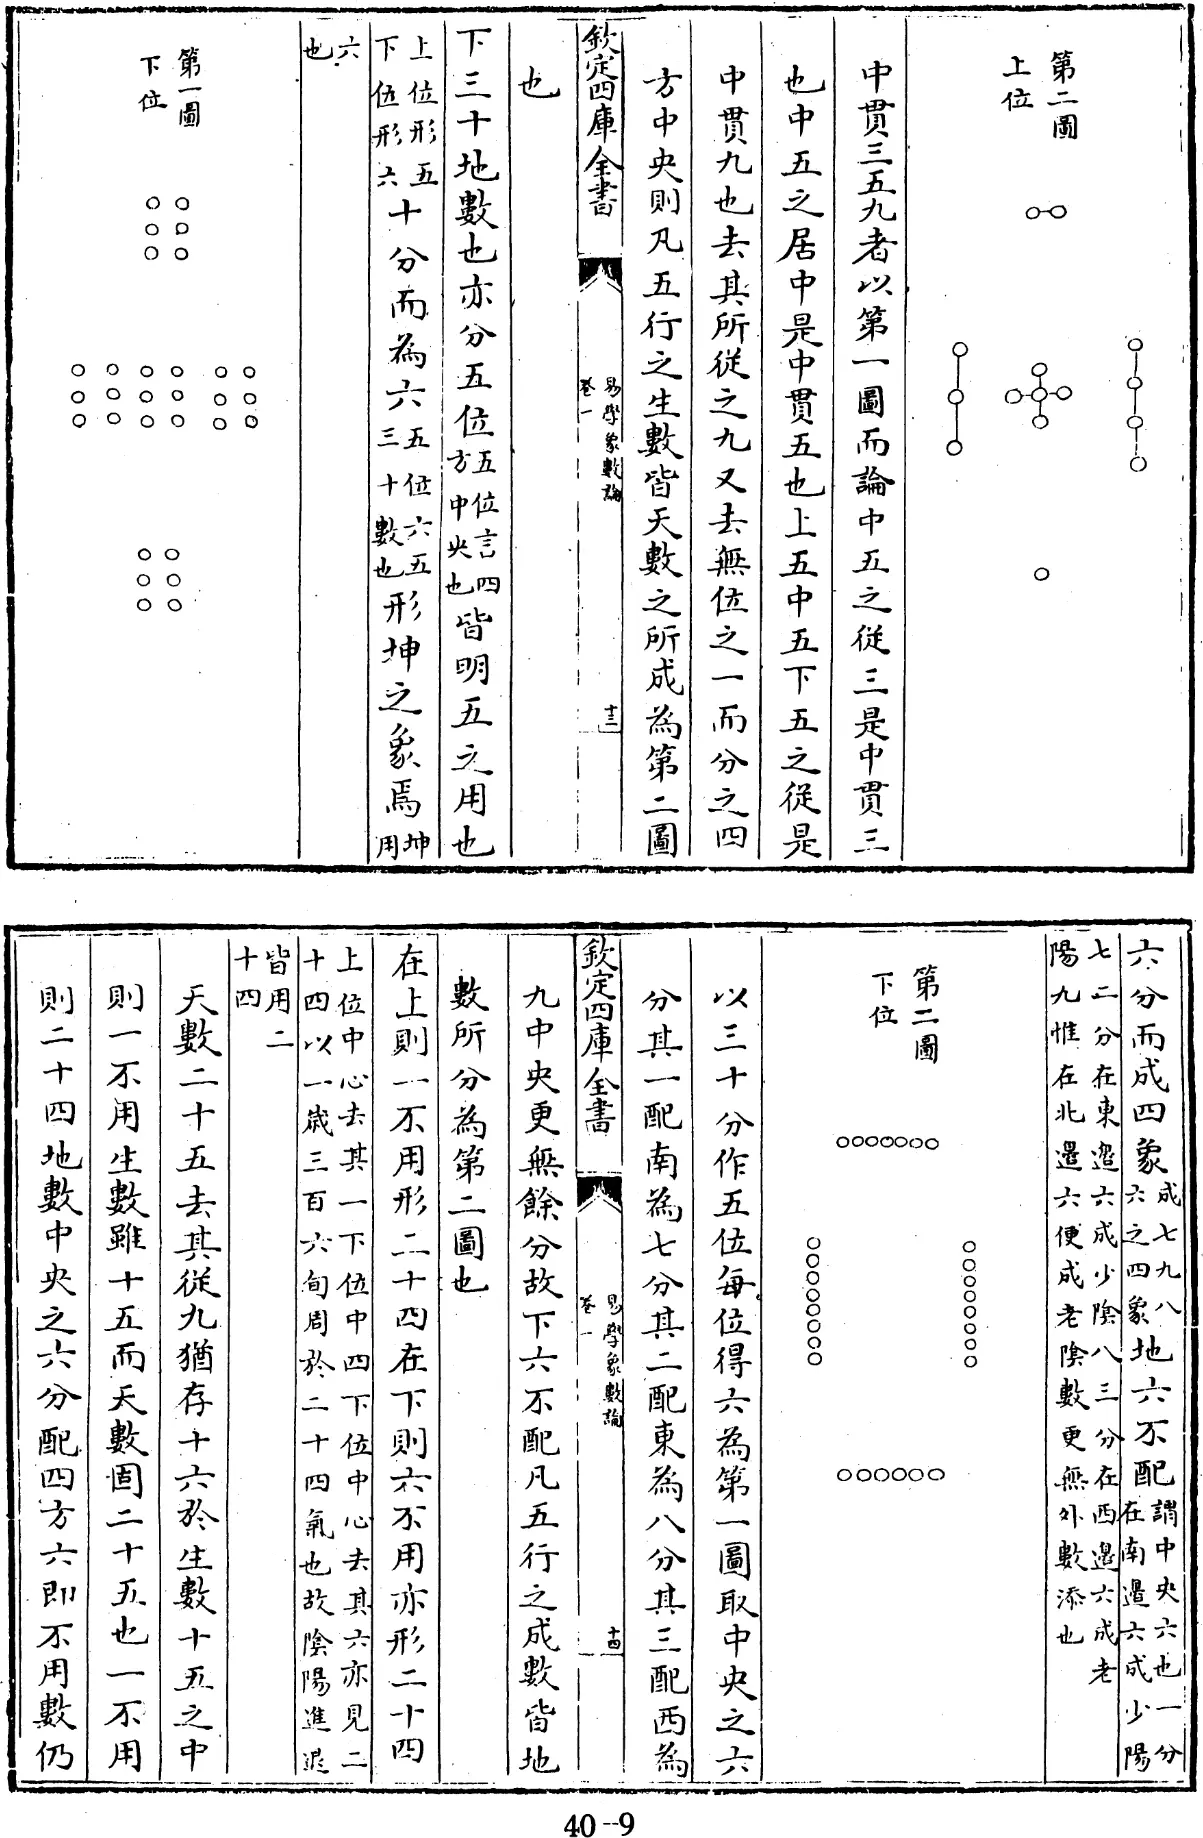 第二圖
上位
中貫三五九者以第一圖而論中五之從三是中貫三
也中五之居中是中貫五也上五中五下五之從是
中貫九也去其所從之九又去無位之一而分之四
方中央則凡五行之生數皆天數之所成為第二圖
欽定四庫全書
易學象數論
卷一
十三
也
下三十地數也亦分五位五位言四方中央也皆明五之用也
上位形五下位形六十分而為六五位六五三十數也形坤之象焉坤用
六也
第一圖
下位
六分而成四象成七九八六之四象地六不配謂中央六也一分在南邊六成少陽
七二分在東邊六成少陰八三分在西邊六成老
陽九惟在北邊六便成老陰數更無外數添也
第二圖
下位
以三十分作五位每位得六為第一圖取中央之六
分其一配南為七分其二配東為八分其三配西為
欽定四庫全書
易學象數論
卷一
十四
九中央更無餘分故下六不配凡五行之成數皆地
數所分為第二圖也
在上則一不用形二十四在下則六不用亦形二十四
上位中心去其一下位中四下位中心去其六亦見二
十四以一歲三百六旬周於二十四氣也故陰陽進退
皆用二
十四
天數二十五去其從九猶存十六於生數十五之中
則一不用生數雖十五而天數固二十五也一不用
則二十四地數中央之六分配四方六即不用數仍
40--9